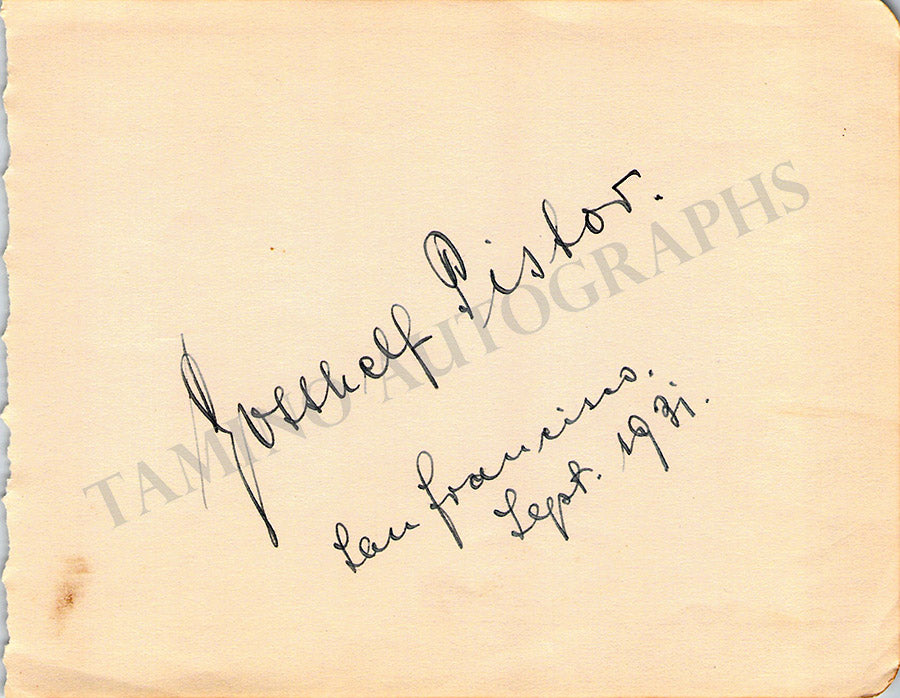 Gotthelf Pistor.
San Francisco.
Sept. 1931.
TAMINO AUTOGRAPHS